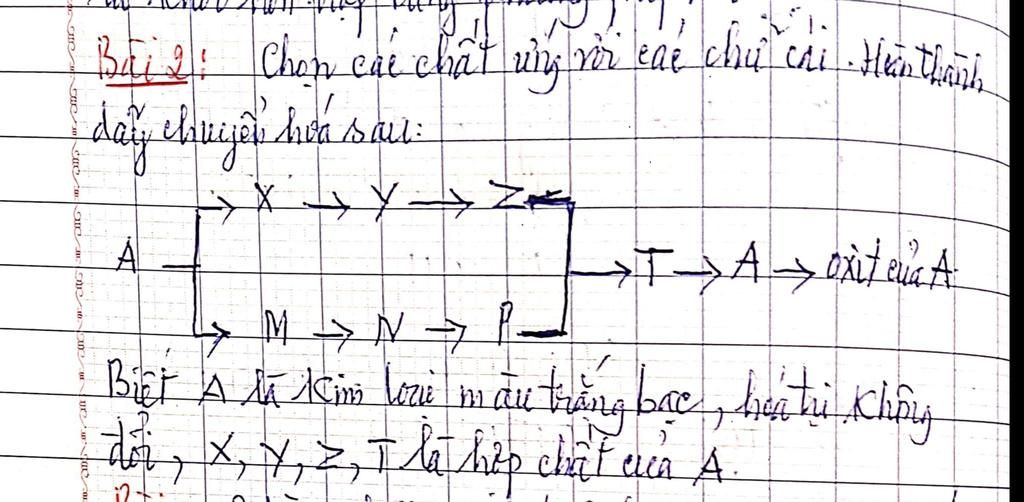 Bài 2: Chọn các chất ứng với các chữ cái. Hoàn thành
dãy chuyển hoá sau:
X → Y → Z
A → T → A → oxit của A
M → N → P
Biết A là kim loại màu trắng bạc, hoá trị không
đổi, X, Y, Z, T là hợp chất của A.